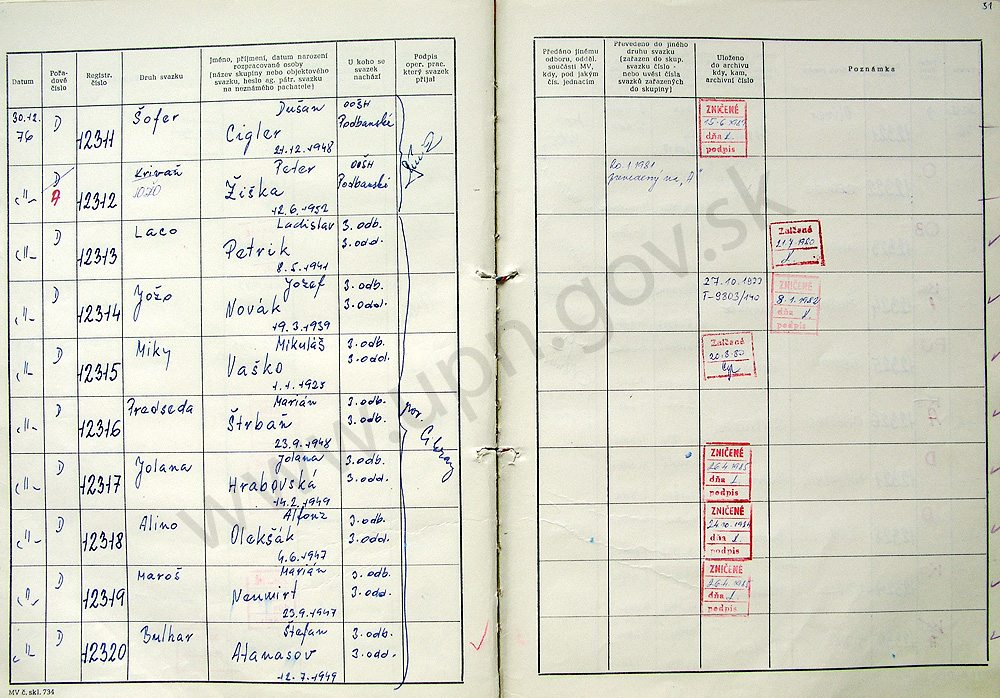 31
Datum
Pořadové číslo
Registr. číslo
Druh svazku
Jméno, příjmení, datum narození rozpracované osoby (název skupiny nebo objektového svazku, heslo ag. pátr. svazku na neznámého pachatele)
U koho se svazek nachází
Podpis oper. prac. který svazek přijal
Předáno jinému odboru, odděl. součásti MV, kdy, pod jakým čís. jednacím
Převedeno do jiného druhu svazku (zařazen do skup. svazku číslo - nebo uvést čísla svazků zařazených do skupiny)
Uloženo do archivu kdy, kam, archivní číslo
Poznámka
30.12. 76 D 12311 Šofer Dušan Cigler 21.12.1948 OOŠH Podbanské
ZNIČENÉ
dňa
podpis
-"- D A 12312 Kriváň Peter Žiška 12.6.1952 OOŠH Podbanské
prevedený na "A"
-"- D 12313 Laco Ladislav Petrik 8.5.1941 3. odb. 3. odd.
Zalčená
-"- D 12314 Jožo Jozef Novák 19.3.1939 3. odb. 3. odd.
27.10.1977
T-9303/140
ZNIČENÉ
8.1.1982
dňa
podpis
-"- D 12315 Miky Mikuláš Vaško 1.1.1925 3. odb. 3. odd.
Zalčená
20.8.80
-"- D 12316 Predseda Marián Štrbaň 23.9.1948 3. odb. 3. odb.
por.
-"- D 12317 Jolana Jolana Hrabovská 14.2.1949 3. odb. 3. odd.
ZNIČENÉ
26.4.1985
dňa
podpis
-"- D 12318 Alino Alfonz Olekšák 4.6.1947 3. odb. 3. odd.
ZNIČENÉ
24.10.1984
dňa
podpis
-"- D 12319 Maroš Marián Neuwirt 23.9.1947 3. odb. 3. odd.
ZNIČENÉ
26.4.1985
dňa
podpis
-"- D 12320 Bulhar Štefan Atanasov 12.7.1949 3. odb. 3. odd.
MV č. skl. 734
www.upn.gov.sk